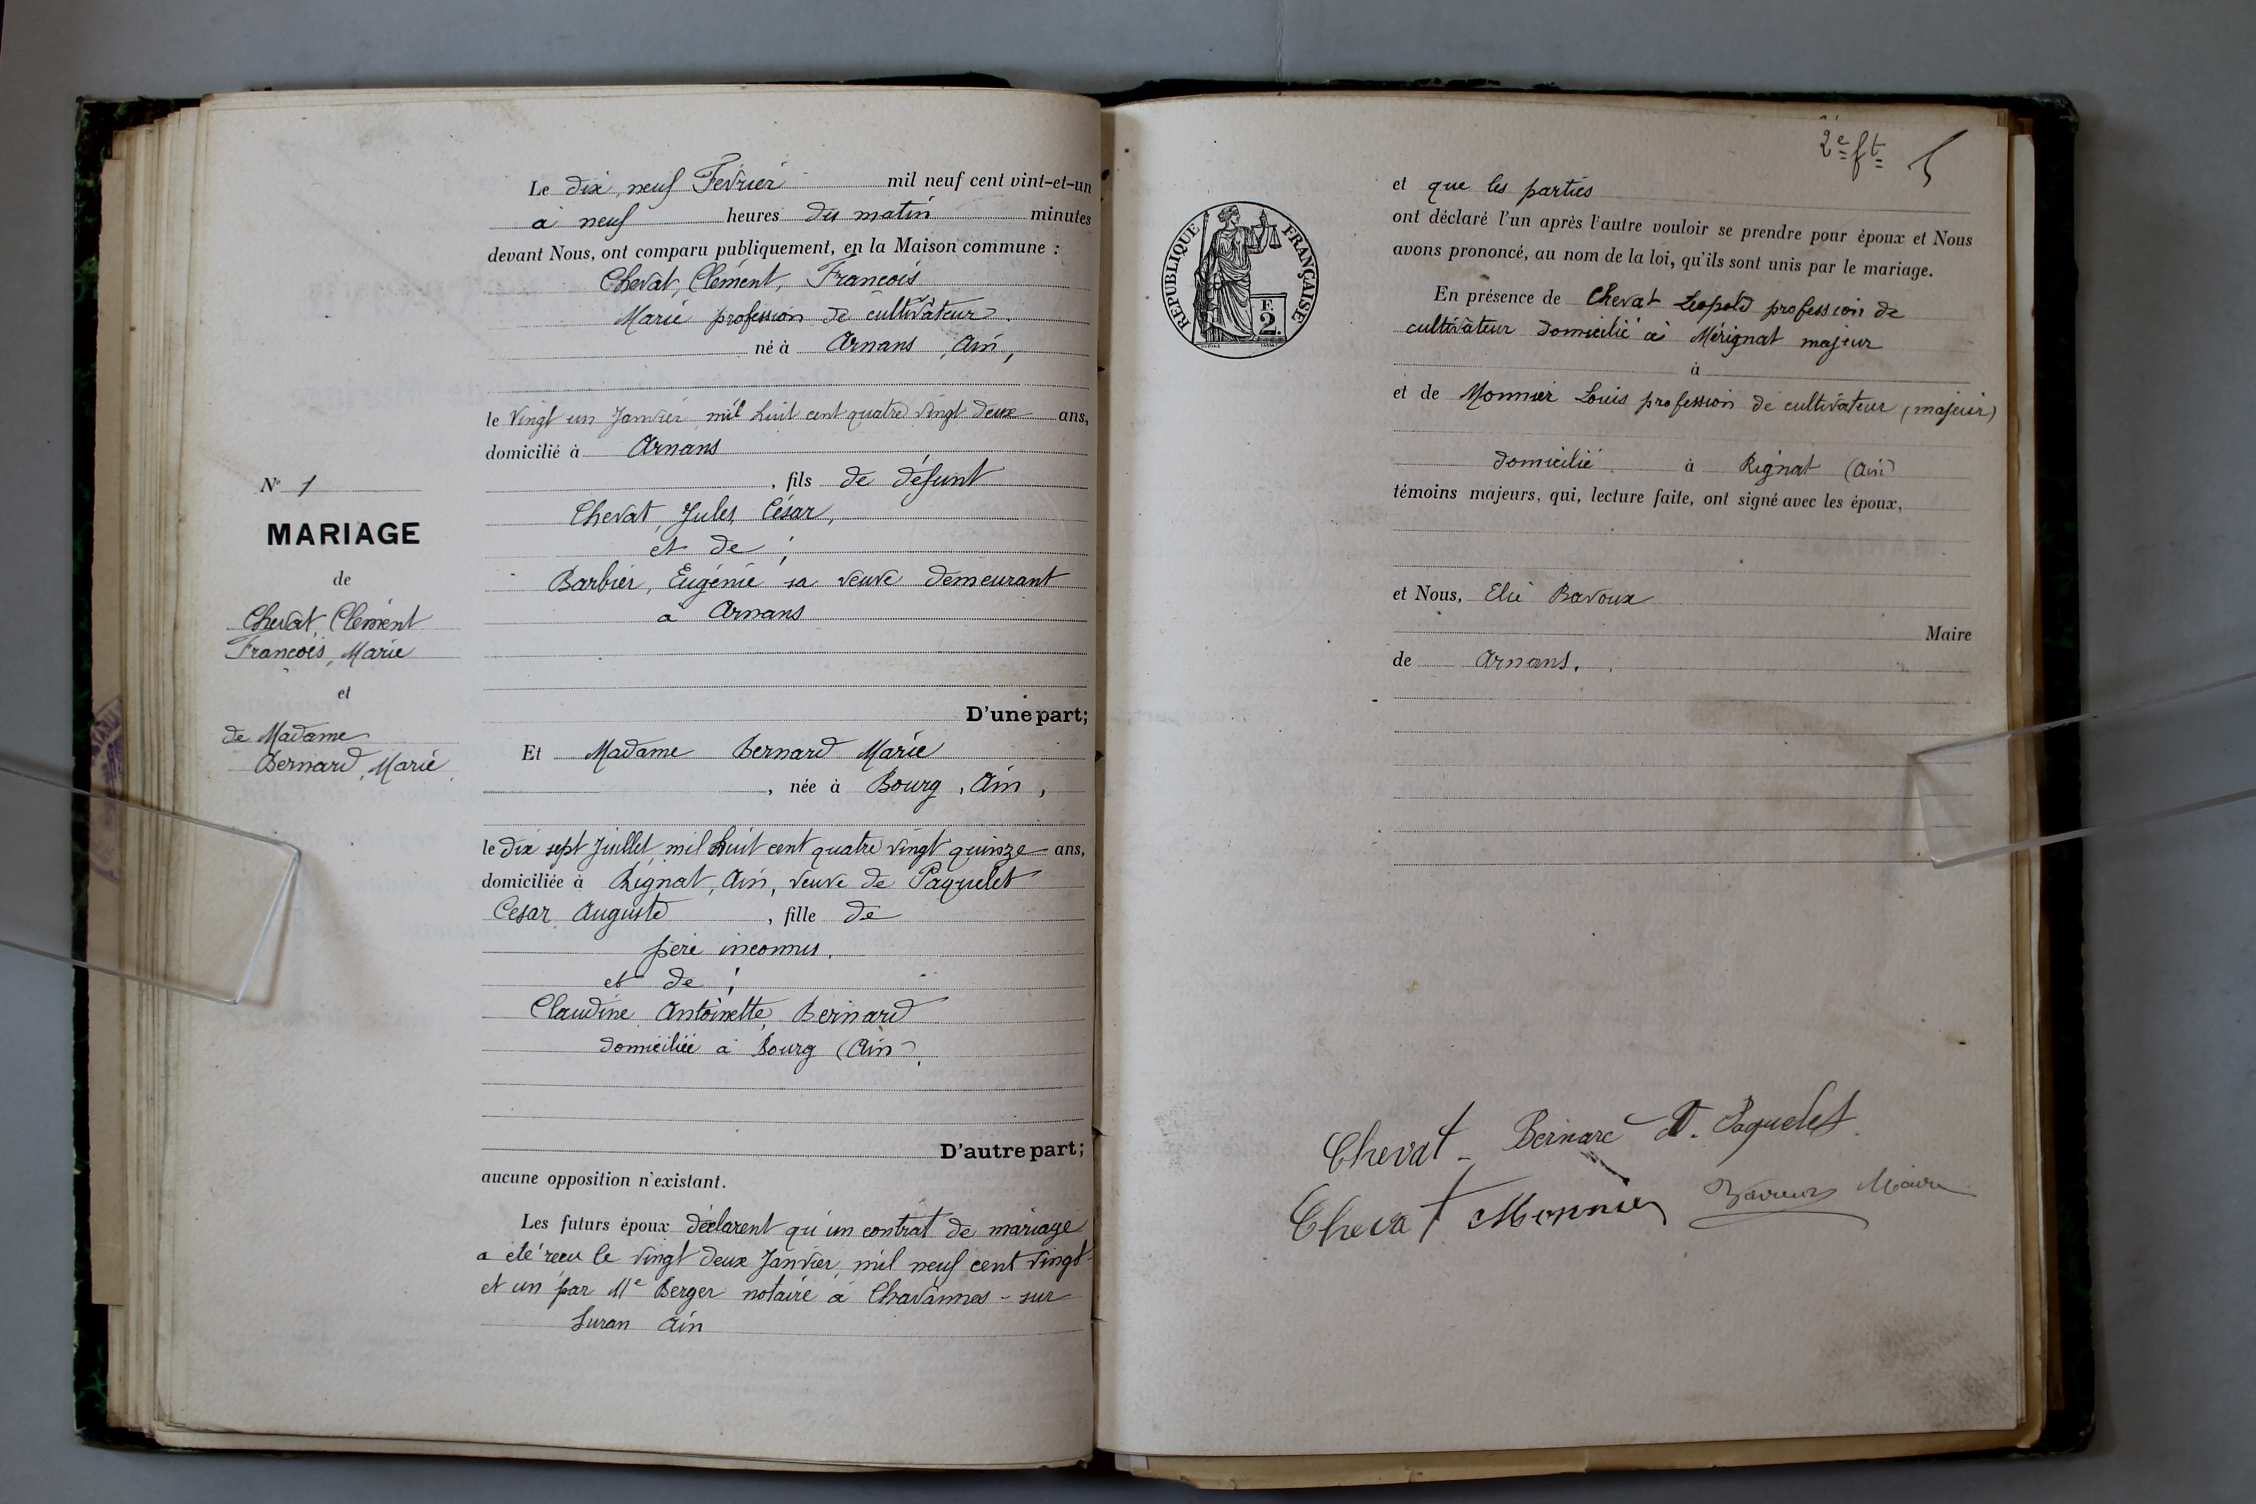 Le dix neuf Février mil neuf cent vint-et-un
à neuf heures du matin minutes
devant Nous, ont comparu publiquement, en la Maison commune :
Chevat, Clément, François
Marie profession de cultivateur.
né à Arnans, Ain,
le Vingt un Janvier mil huit cent quatre vingt deux ans,
domicilié à Arnans
, fils de défunt
Chevat, Jules, César,
et de ;
Barbier, Eugénie sa veuve demeurant
à Arnans
D'une part;
Et Madame Bernard Marie
, née à Bourg, Ain,
le dix sept Juillet, mil huit cent quatre vingt quinze ans,
domiciliée à Rignat, Ain, veuve de Paquelet
César Auguste , fille de
père inconnus.
et de ;
Claudine Antoinette, Bernard
domiciliée à Bourg (Ain).
D'autre part;
aucune opposition n'existant.
Les futurs époux déclarent qu'un contrat de mariage
a été reçu le vingt deux Janvier, mil neuf cent vingt
et un par Me Berger notaire à Chavannes-sur
Suran Ain
No 1
MARIAGE
de
Chevat, Clément
François, Marie
et
de Madame
Bernard, Marie
2e ft
5
RÉPUBLIQUE FRANÇAISE
F.
2.
et que les parties
ont déclaré l'un après l'autre vouloir se prendre pour époux et Nous
avons prononcé, au nom de la loi, qu'ils sont unis par le mariage.
En présence de Chevat Léopold profession de
cultivateur domicilié à Mérignat majeur
à
et de Monnier Louis profession de cultivateur (majeur)
domicilié à Rignat (Ain)
témoins majeurs, qui, lecture faite, ont signé avec les époux,
et Nous, Elie Bavoux
Maire
de Arnans.
Chevat - Bernard Paquelet
Chevat Monnier Bavoux Maire